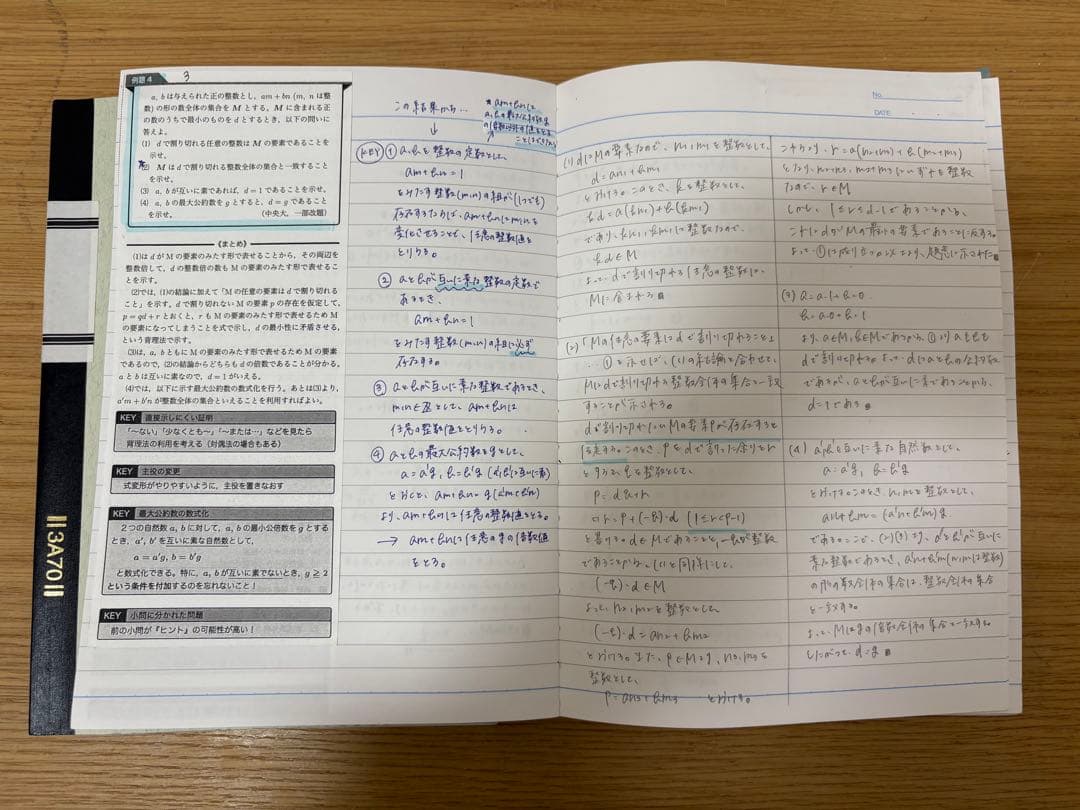 例題 4
3
a, bは与えられた正の整数とし, am+bn (m, n は整
数) の形の数全体の集合を M とする。M に含まれる正
の数のうちで最小のものを d とするとき, 以下の問いに
答えよ。
(1) d で割り切れる任意の整数は M の要素であることを
示せ。
(2) M は d で割り切れる整数全体の集合と一致すること
を示せ。
(3) a, b が互いに素であれば, d=1 であることを示せ。
(4) a, b の最大公約数を g とすると, d=g であることを
示せ。
(中央大, 一部改題)
《まとめ》
(1)は d が M の要素のみたす形で表せることから, その両辺を
整数倍して, d の整数倍の数も M の要素のみたす形で表せるこ
とを示す。
(2)では, (1)の結論に加えて「M の任意の要素は d で割り切れる
こと」を示す。d で割り切れない M の要素 p の存在を仮定して,
p=qd+r とおくと, r も M の要素のみたす形で表せるため M の
要素になってしまうことを式で示し, d の最小性に矛盾させる,
という背理法で示す。
(3)は, a, b ともに M の要素のみたす形で表せるため M の要素
であるので, (2)の結論からどちらも d の倍数であることが分かる。
a と b は互いに素なので, d=1 がいえる。
(4)では, 以下に示す最大公約数の数式化を行う。あとは(3)より,
a'm+b'n が整数全体の集合といえることを利用すればよい。
KEY 直接示しにくい証明
「〜ない」「少なくとも〜」「〜または…」などを見たら
背理法の利用を考える (対偶法の場合もある)
KEY 主役の変更
式変形がやりやすいように, 主役を置きなおす
KEY 最大公約数の数式化
2つの自然数 a, b に対して, a, b の最小公倍数を g とする
とき, a', b' を互いに素な自然数として,
a=a'g, b=b'g
と数式化できる。特に, a, b が互いに素でないとき, g≧2
という条件を付加するのを忘れないこと!
KEY 小問に分かれた問題
前の小問が『ヒント』の可能性が高い!
||3A70||
この結果から…
↓
* am+bnは
a,bの最大公約数g
の倍数以外の値をとる
ことはできない
KEY ① a,bを整数の定数として、
am+bn=1
をみたす整数(m,n)の組が(1つでも)
存在するならば、am+bnはm,nを
変化させることで、任意の整数値を
とりうる。
② aとbが互いに素な整数の定数で
あるとき、
am+bn=1
をみたす整数(m,n)の組は必ず
存在する。
③ aとbが互いに素な整数であるとき、
m,n∈Zとして、am+bnは
任意の整数値をとりうる。
④ aとbの最大公約数をgとして、
a=a'g, b=b'g (a',b'は互いに素)
とおくと、am+bn=g(a'm+b'n)
より、am+bnは任意の整数値をとる。
→ am+bnは任意のgの倍数値
をとる。
(1) dはMの要素なので、n1,m1を整数として、
d=an1+bm1
とおける。このとき、kを整数として、
kd=a(kn1)+b(km1)
であり、kn1,km1は整数なので、
kd∈M
よって、dで割り切れる任意の整数は、
Mに含まれる■
(2)「Mの任意の要素はdで割り切れること」
…①を示せば、(1)の結論と合わせて、
Mはdで割り切れる整数全体の集合と一致
することが示される。
dで割り切れないMの要素Pが存在すると
仮定する。このとき、Pをdで割った余りをr
とすると、kを整数として、
P=dk+r
⇔r=P+(-k)・d (1≦r<P-1)
と書ける。d∈Mであることと、-kが整数
であることから、(1)と同様にして、
(-k)・d∈M
よって、n2,m2を整数として、
(-k)・d=an2+bm2
とおける。また、P∈Mより、n3,m3を
整数として、
P=an3+bm3 とおける。
No.
DATE
これより、r=a(n2+n3)+b(m2+m3)
となり、n2+n3,m2+m3はいずれも整数
なので、r∈M
しかし、1≦r≦d-1であることから、
これはdがMの最小の要素であることに反する。
よって、①は成り立つ
(3) a=a・1+b・0
b=a・0+b・1
より、a∈M,b∈Mであるから、①よりaもbも
dで割り切れる。よって、dはaとbの公約数
であるが、aとbが互いに素であることから、
d=1である■
(4) a',b'を互いに素な自然数として、
a=a'g, b=b'g
とおける。このとき、n,mを整数として、
an+bm=(a'n+b'm)g
である。ここで、(2)(3)より、a'とb'が互いに
素な整数であるとき、a'n+b'm(n,mは整数)
の形の数全体の集合は、整数全体の集合
と一致する。
よって、Mはgの倍数全体の集合と一致する。
したがって、d=g■